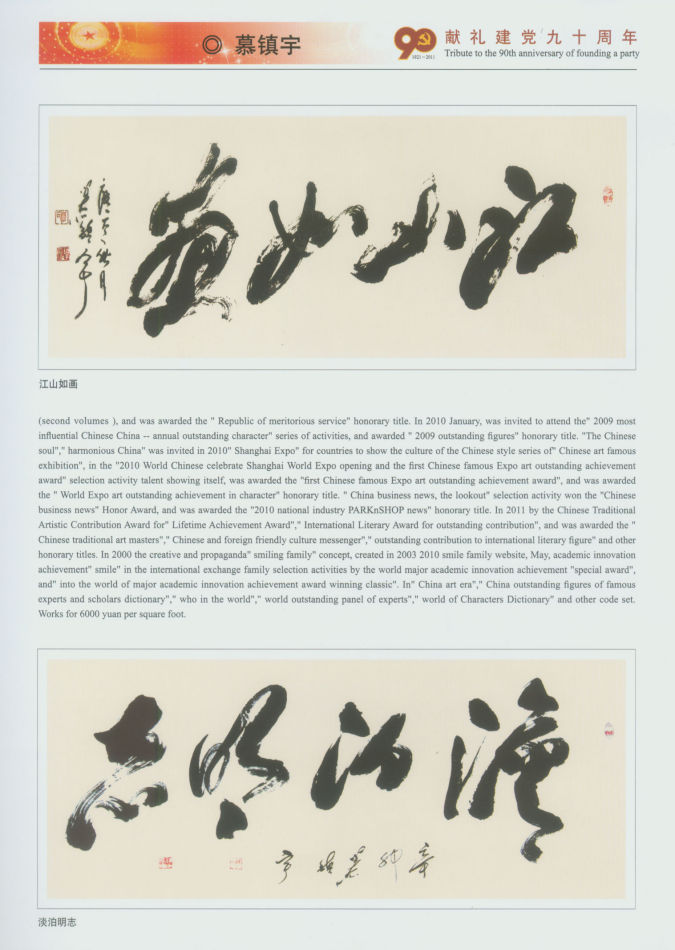 ◎ 慕镇宇
献礼建党九十周年
Tribute to the 90th anniversary of founding a party
90
1921-2011
江山如画
江山如画
(second volumes ), and was awarded the " Republic of meritorious service" honorary title. In 2010 January, was invited to attend the" 2009 most
influential Chinese China -- annual outstanding character" series of activities, and awarded " 2009 outstanding figures" honorary title. "The Chinese
soul"," harmonious China" was invited in 2010" Shanghai Expo" for countries to show the culture of the Chinese style series of" Chinese art famous
exhibition", in the "2010 World Chinese celebrate Shanghai World Expo opening and the first Chinese famous Expo art outstanding achievement
award" selection activity talent showing itself, was awarded the "first Chinese famous Expo art outstanding achievement award", and was awarded
the " World Expo art outstanding achievement in character" honorary title. " China business news, the lookout" selection activity won the "Chinese
business news" Honor Award, and was awarded the "2010 national industry PARKnSHOP news" honorary title. In 2011 by the Chinese Traditional
Artistic Contribution Award for" Lifetime Achievement Award"," International Literary Award for outstanding contribution", and was awarded the "
Chinese traditional art masters"," Chinese and foreign friendly culture messenger"," outstanding contribution to international literary figure" and other
honorary titles. In 2000 the creative and propaganda" smiling family" concept, created in 2003 2010 smile family website, May, academic innovation
achievement" smile" in the international exchange family selection activities by the world major academic innovation achievement "special award",
and" into the world of major academic innovation achievement award winning classic". In" China art era"," China outstanding figures of famous
experts and scholars dictionary"," who in the world"," world outstanding panel of experts"," world of Characters Dictionary" and other code set.
Works for 6000 yuan per square foot.
澹泊明志
淡泊明志